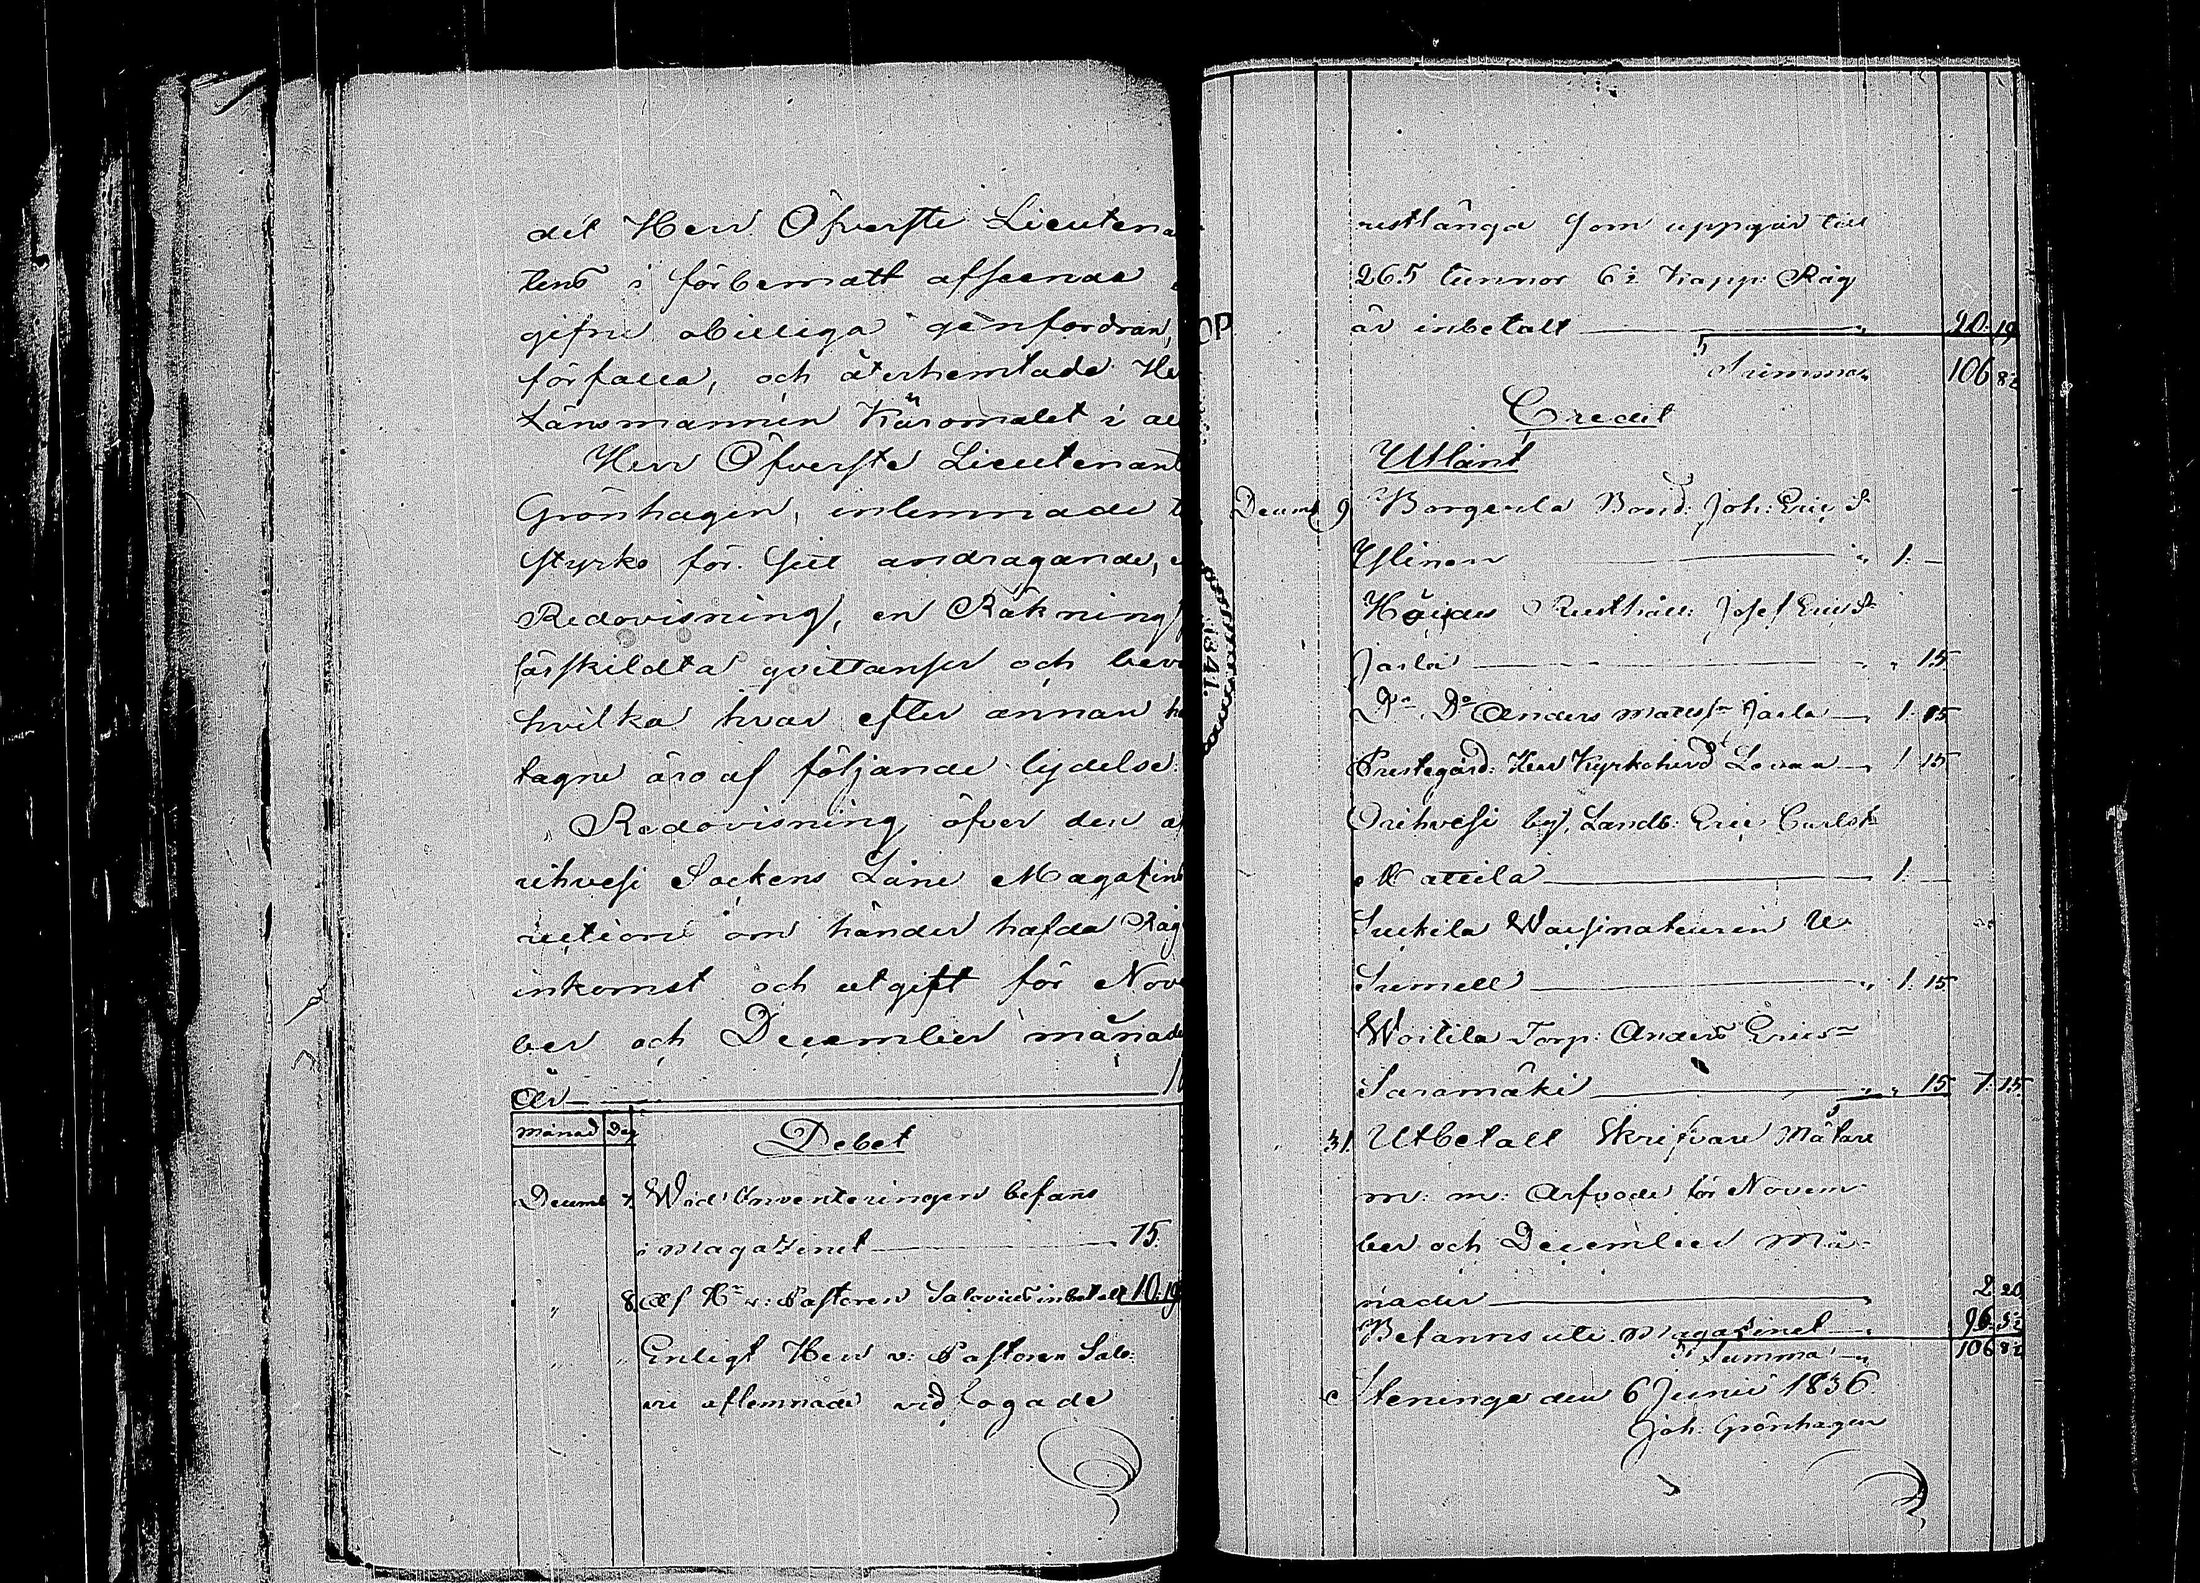 det Herr Öfverste Lieutena
tens i förbemält afseende
gifne obilliga genfordran,
förfalla, och återhemtade He
Länsmannen Käromålet i al
Herr Öfverste Lieutenant
Grönhagen, inlemnade t
styrko för sitt andragande, e
Redovisning, en Räkning
särskildta qvittanser och bev
hvilka hvar efter annan
tagne äro af följande lydelse:
Redovisning öfver den
rihvesi Sockens Låne Magazins
rectione om händer hafda Råg
inkomst och utgift för Nov
ber och December månade
År
Månad Dag Debet
Decemb 7. Wid Inventeringen befans
i Magazinet 75.
" 8. Af Hr v: Pastoren Salovius inbetalt 10. 19
" " Enligt Herr v: Pastoren Salo-
vii aflemnade vid lagade
restlänga som uppgår till
265 tunnor 6½ kapp: Råg
är inbetalt 20. 19
Summa 106 8½
Credit
Utlånt
Decemb 9 Borgenla Bond: Joh: Erics:
Yllinen 1. —
Rusthåll: Josef Erics:
Jaxla " 15
Dn Do Anders Mattss: Jaxla 1. 15
Prestegård: Herr Kyrkoherd 1 15
Orihvesi by, Landb: Eric Carls:
Mattila 1. —
Suckila
Sumell 1. 15
Woitila Torp: Anders Erics:
Saramäki " 15 7. 15.
31. Utbetalt Skrifvare Mätare
m: m: Arfvode för Novem-
ber och December Må-
nader 2 20
Befanns uti Magazinet 96. 3½
Summa 106 8½
Steninge den 6 Junii 1836
Joh: Grönhagen